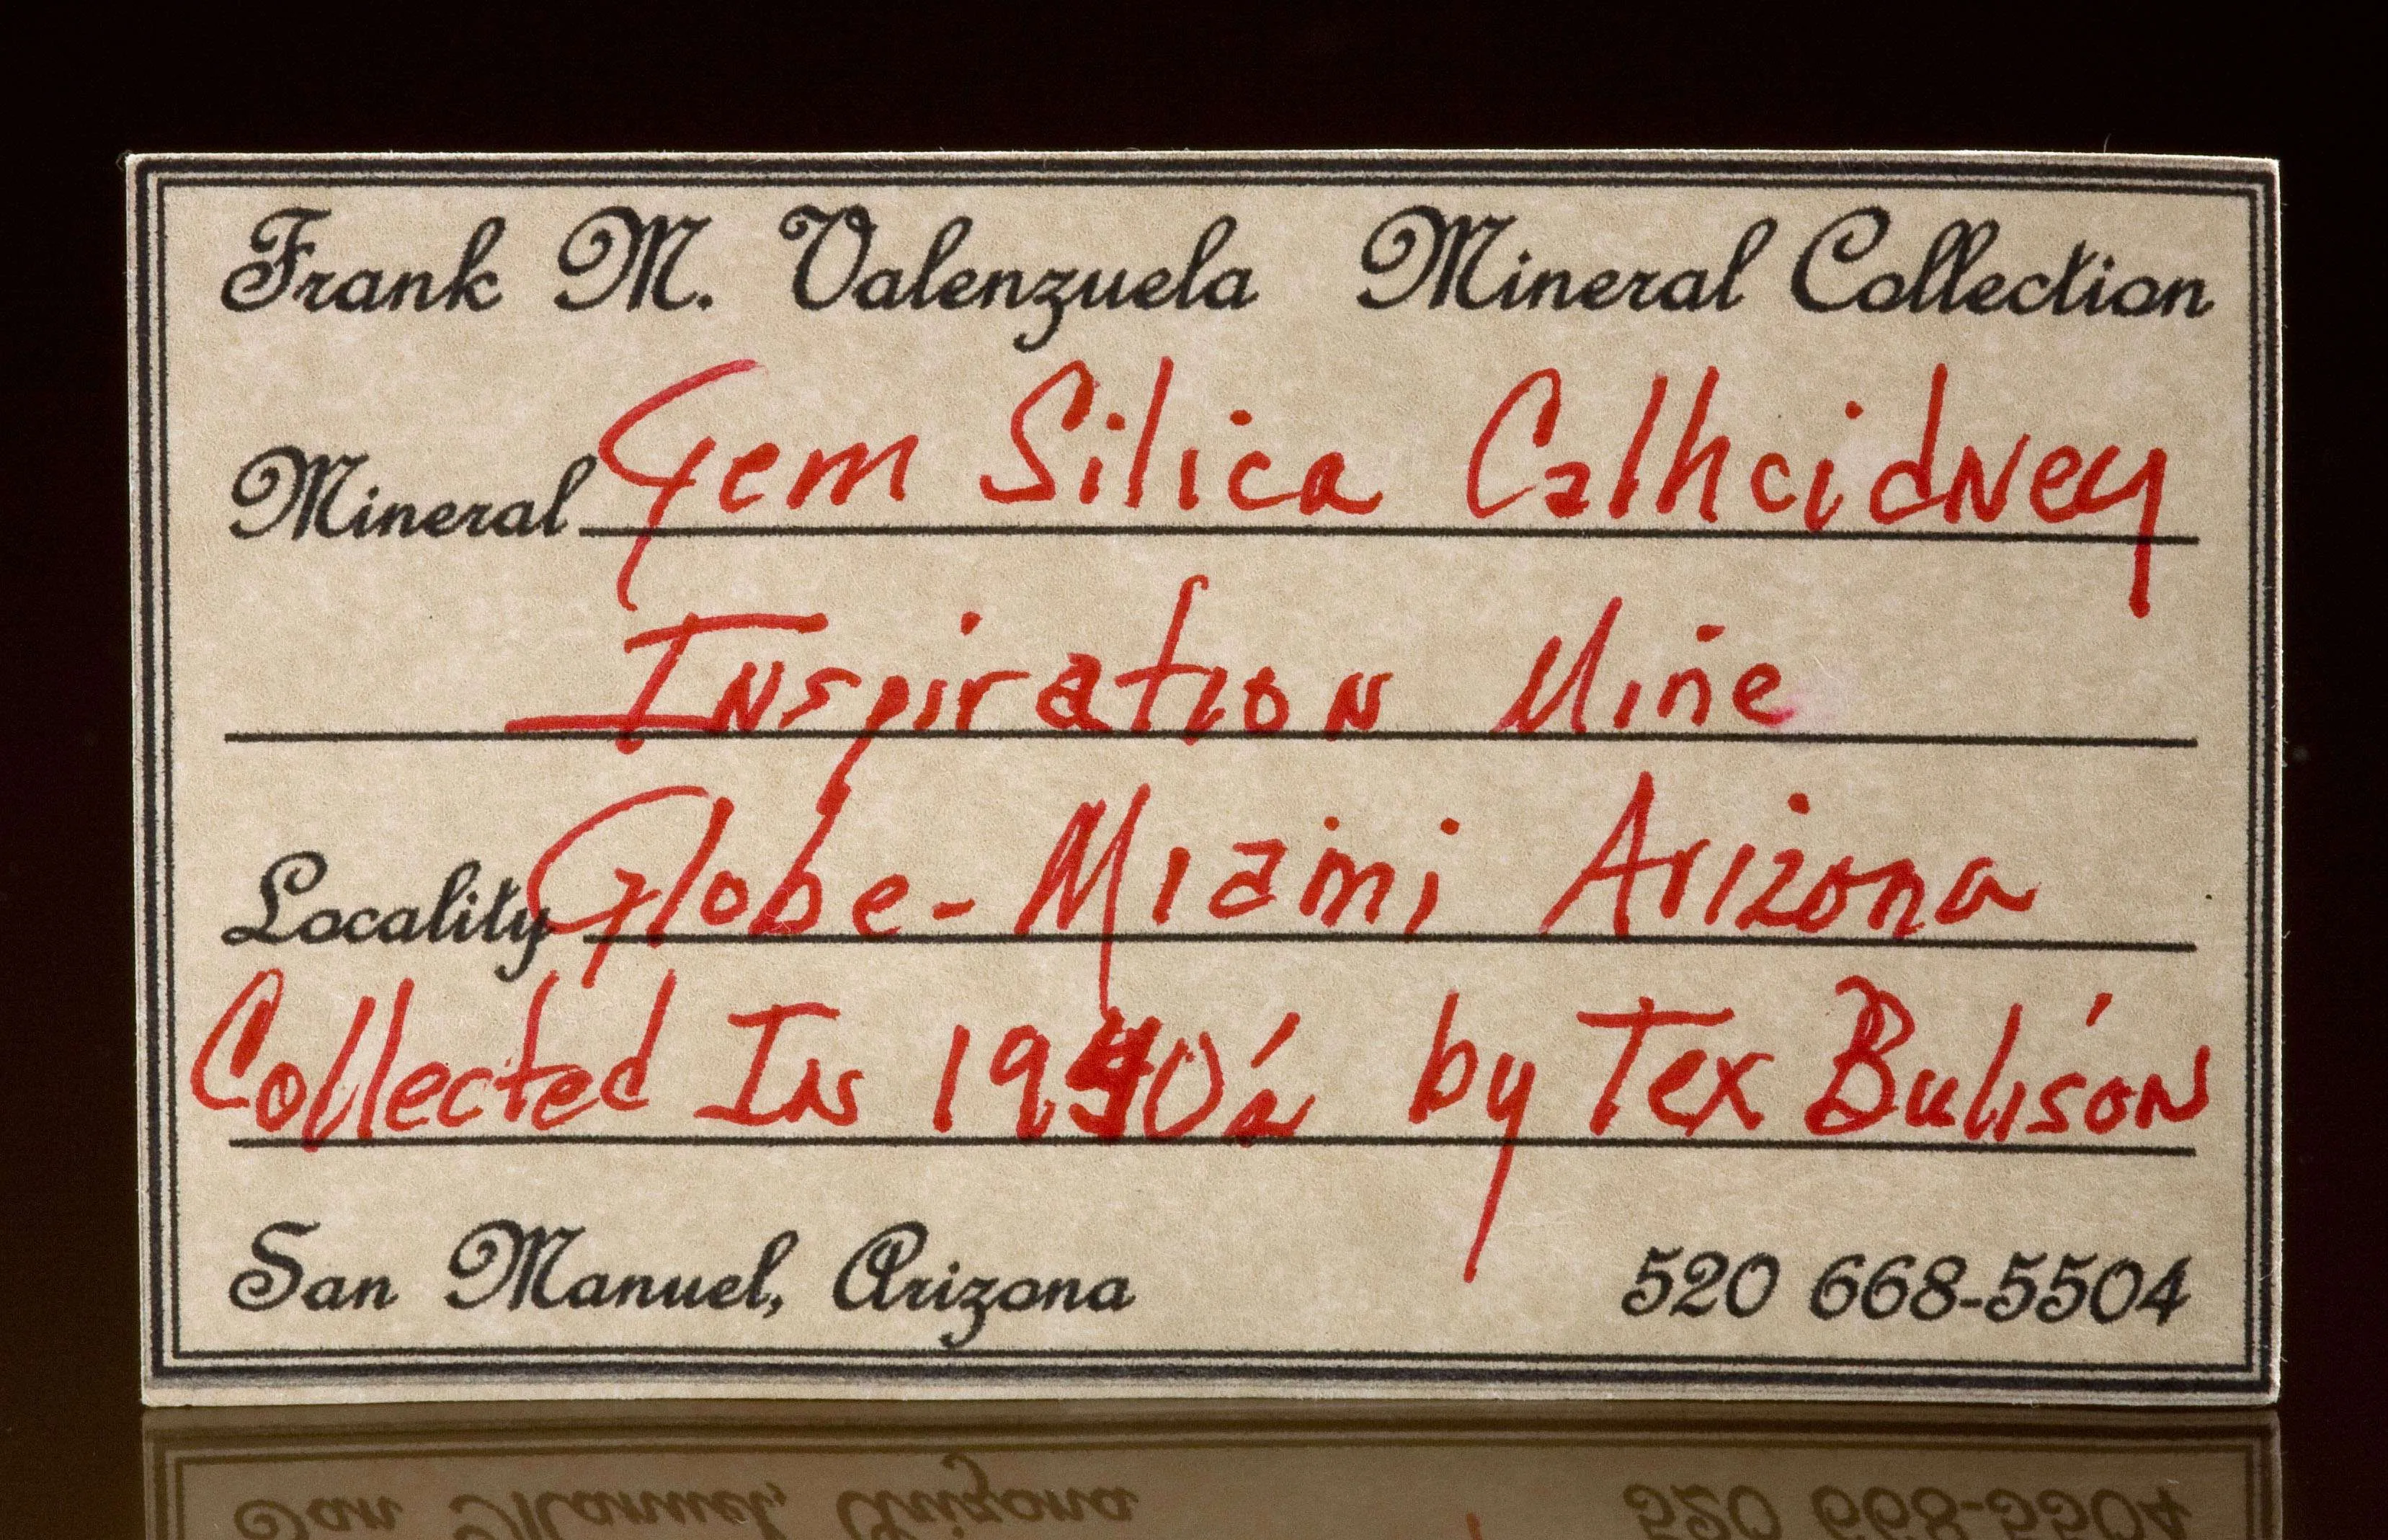 Frank M. Valenzuela Mineral Collection
Mineral Gem Silica Calhcidney
Inspiration Mine
Locality Globe-Miami Arizona
Collected In 1940's by Tex Bulison
San Manuel, Arizona 520 668-5504